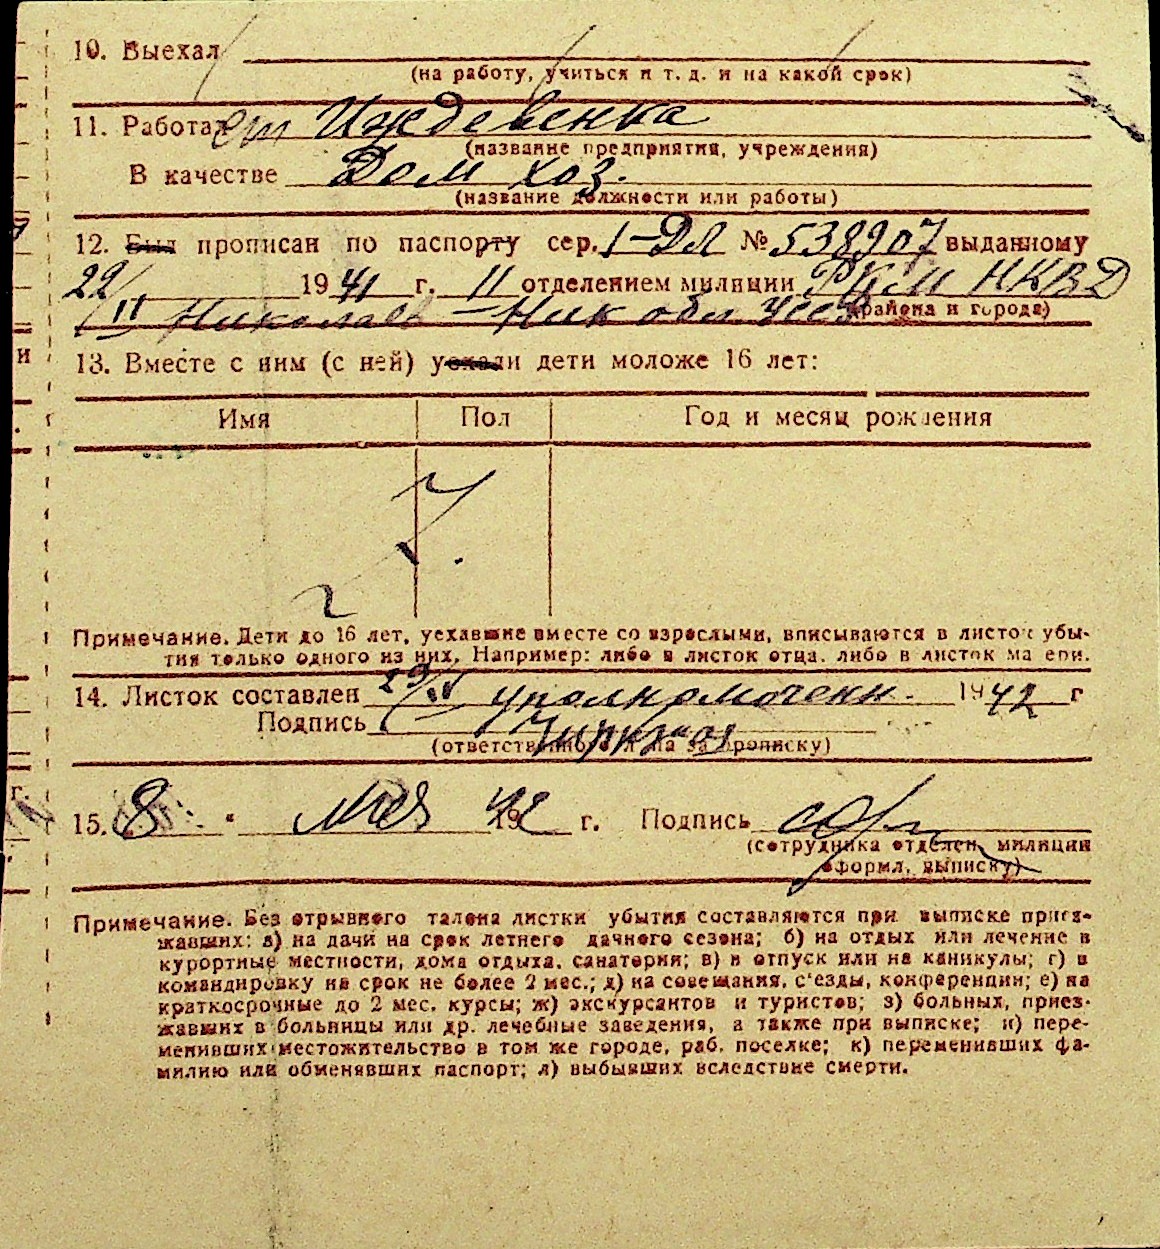 10. Выехал
(на работу, учиться и т. д. и на какой срок)
11. Работает Иждевенка
(название предприятия, учреждения)
В качестве Дом хоз.
(название должности или работы)
12. Был прописан по паспорту сер. I-ДЛ № 538907 выданному
22/II 1941 г. II отделением милиции РКМ НКВД
Николаев - Ник обл УССР (района и города)
13. Вместе с ним (с ней) уехали дети моложе 16 лет:
Имя Пол Год и месяц рождения
Примечание. Дети до 16 лет, уехавшие вместе со взрослыми, вписываются в листок убы-
тия только одного из них. Например: либо в листок отца, либо в листок матери.
14. Листок составлен 29/IV уполномочен. 1942 г
Подпись
(ответственного лица за прописку)
15. 8 " мая 1942 г. Подпись
(сотрудника отделен. милиции
оформл. выписку)
Примечание. Без отрывного талона листки убытия составляются при выписке приез-
жавших: а) на дачи на срок летнего дачного сезона; б) на отдых или лечение в
курортные местности, дома отдыха, санатории; в) в отпуск или на каникулы; г) в
командировку на срок не более 2 мес.; д) на совещания, с'езды, конференции; е) на
краткосрочные до 2 мес. курсы; ж) экскурсантов и туристов; з) больных, приез-
жавших в больницы или др. лечебные заведения, а также при выписке; и) пере-
менивших местожительство в том же городе, раб. поселке; к) переменивших фа-
милию или обменявших паспорт; л) выбывших вследствие смерти.